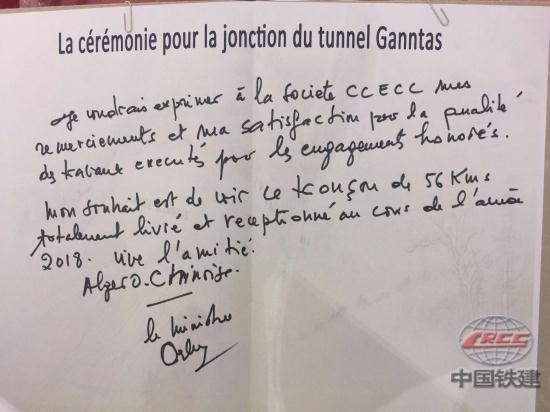 La cérémonie pour la jonction du tunnel Ganntas
Je voudrais exprimer à la Société CCECC mes
remerciements et ma satisfaction pour la qualité
des travaux executés pour les engagement honorés.
Mon souhait est de voir ce tronçon de 56 Kms
totalement livré et receptionné au cours de l'année
2018. Vive l'amitié.
Algero-Chinoise.
le Ministre
CRCC
中国铁建